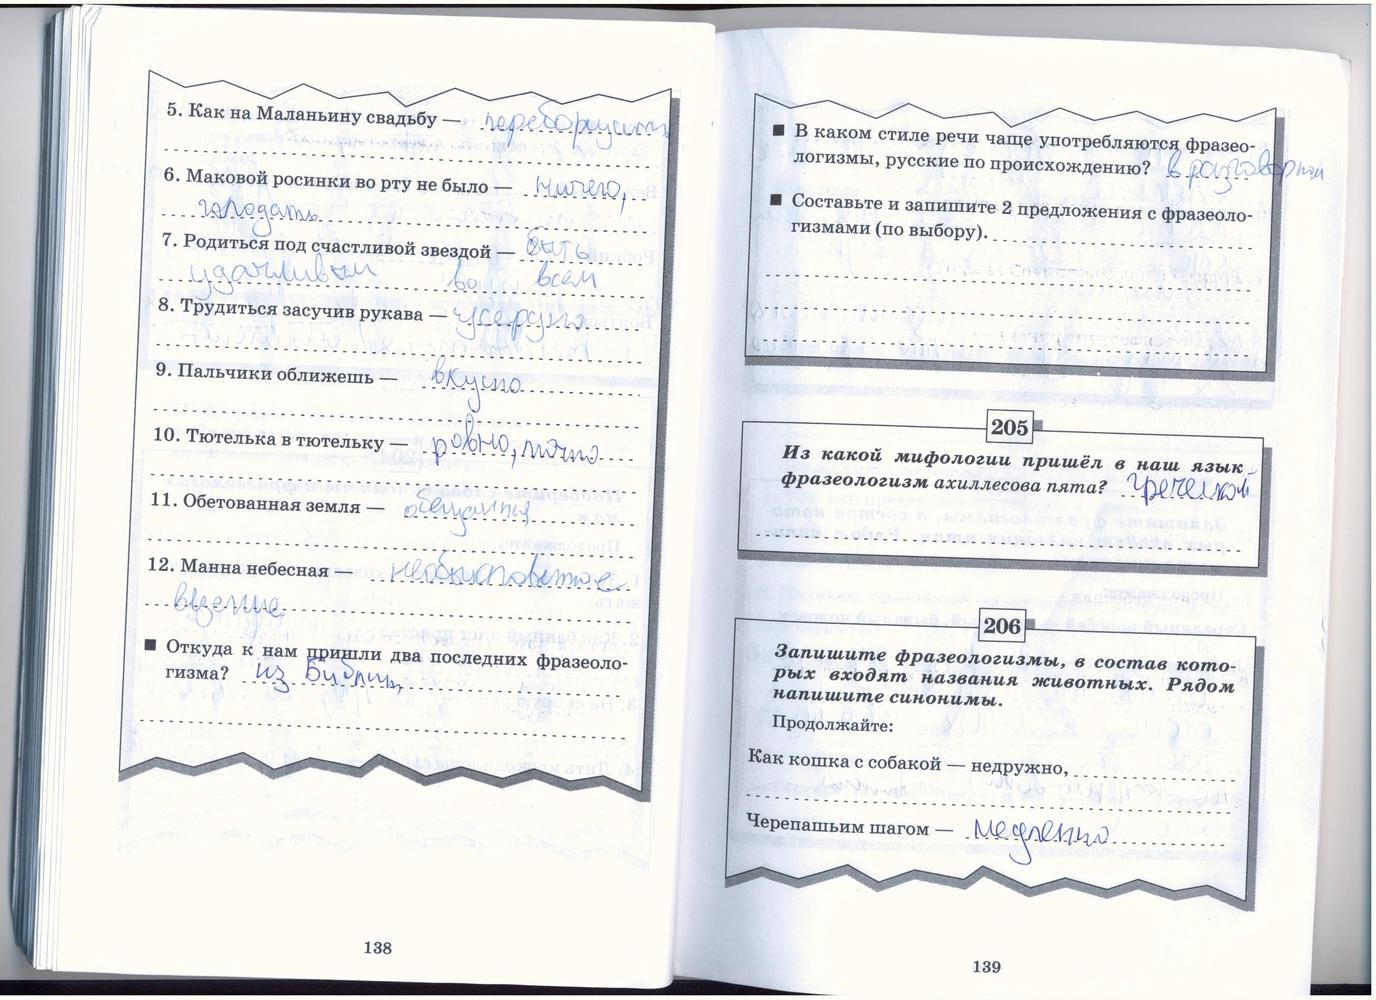 5. Как на Маланьину свадьбу —
6. Маковой росинки во рту не было — ничего,
голодать
7. Родиться под счастливой звездой — быть
удачливым во всем
8. Трудиться засучив рукава — усердно
9. Пальчики оближешь — вкусно
10. Тютелька в тютельку — ровно, точно
11. Обетованная земля —
12. Манна небесная —
■ Откуда к нам пришли два последних фразеоло-
гизма? из Библии
138
■ В каком стиле речи чаще употребляются фразео-
логизмы, русские по происхождению? в разговорном
■ Составьте и запишите 2 предложения с фразеоло-
гизмами (по выбору).
205
Из какой мифологии пришёл в наш язык
фразеологизм ахиллесова пята? Греческой
206
Запишите фразеологизмы, в состав кото-
рых входят названия животных. Рядом
напишите синонимы.
Продолжайте:
Как кошка с собакой — недружно,
Черепашьим шагом — медленно
139